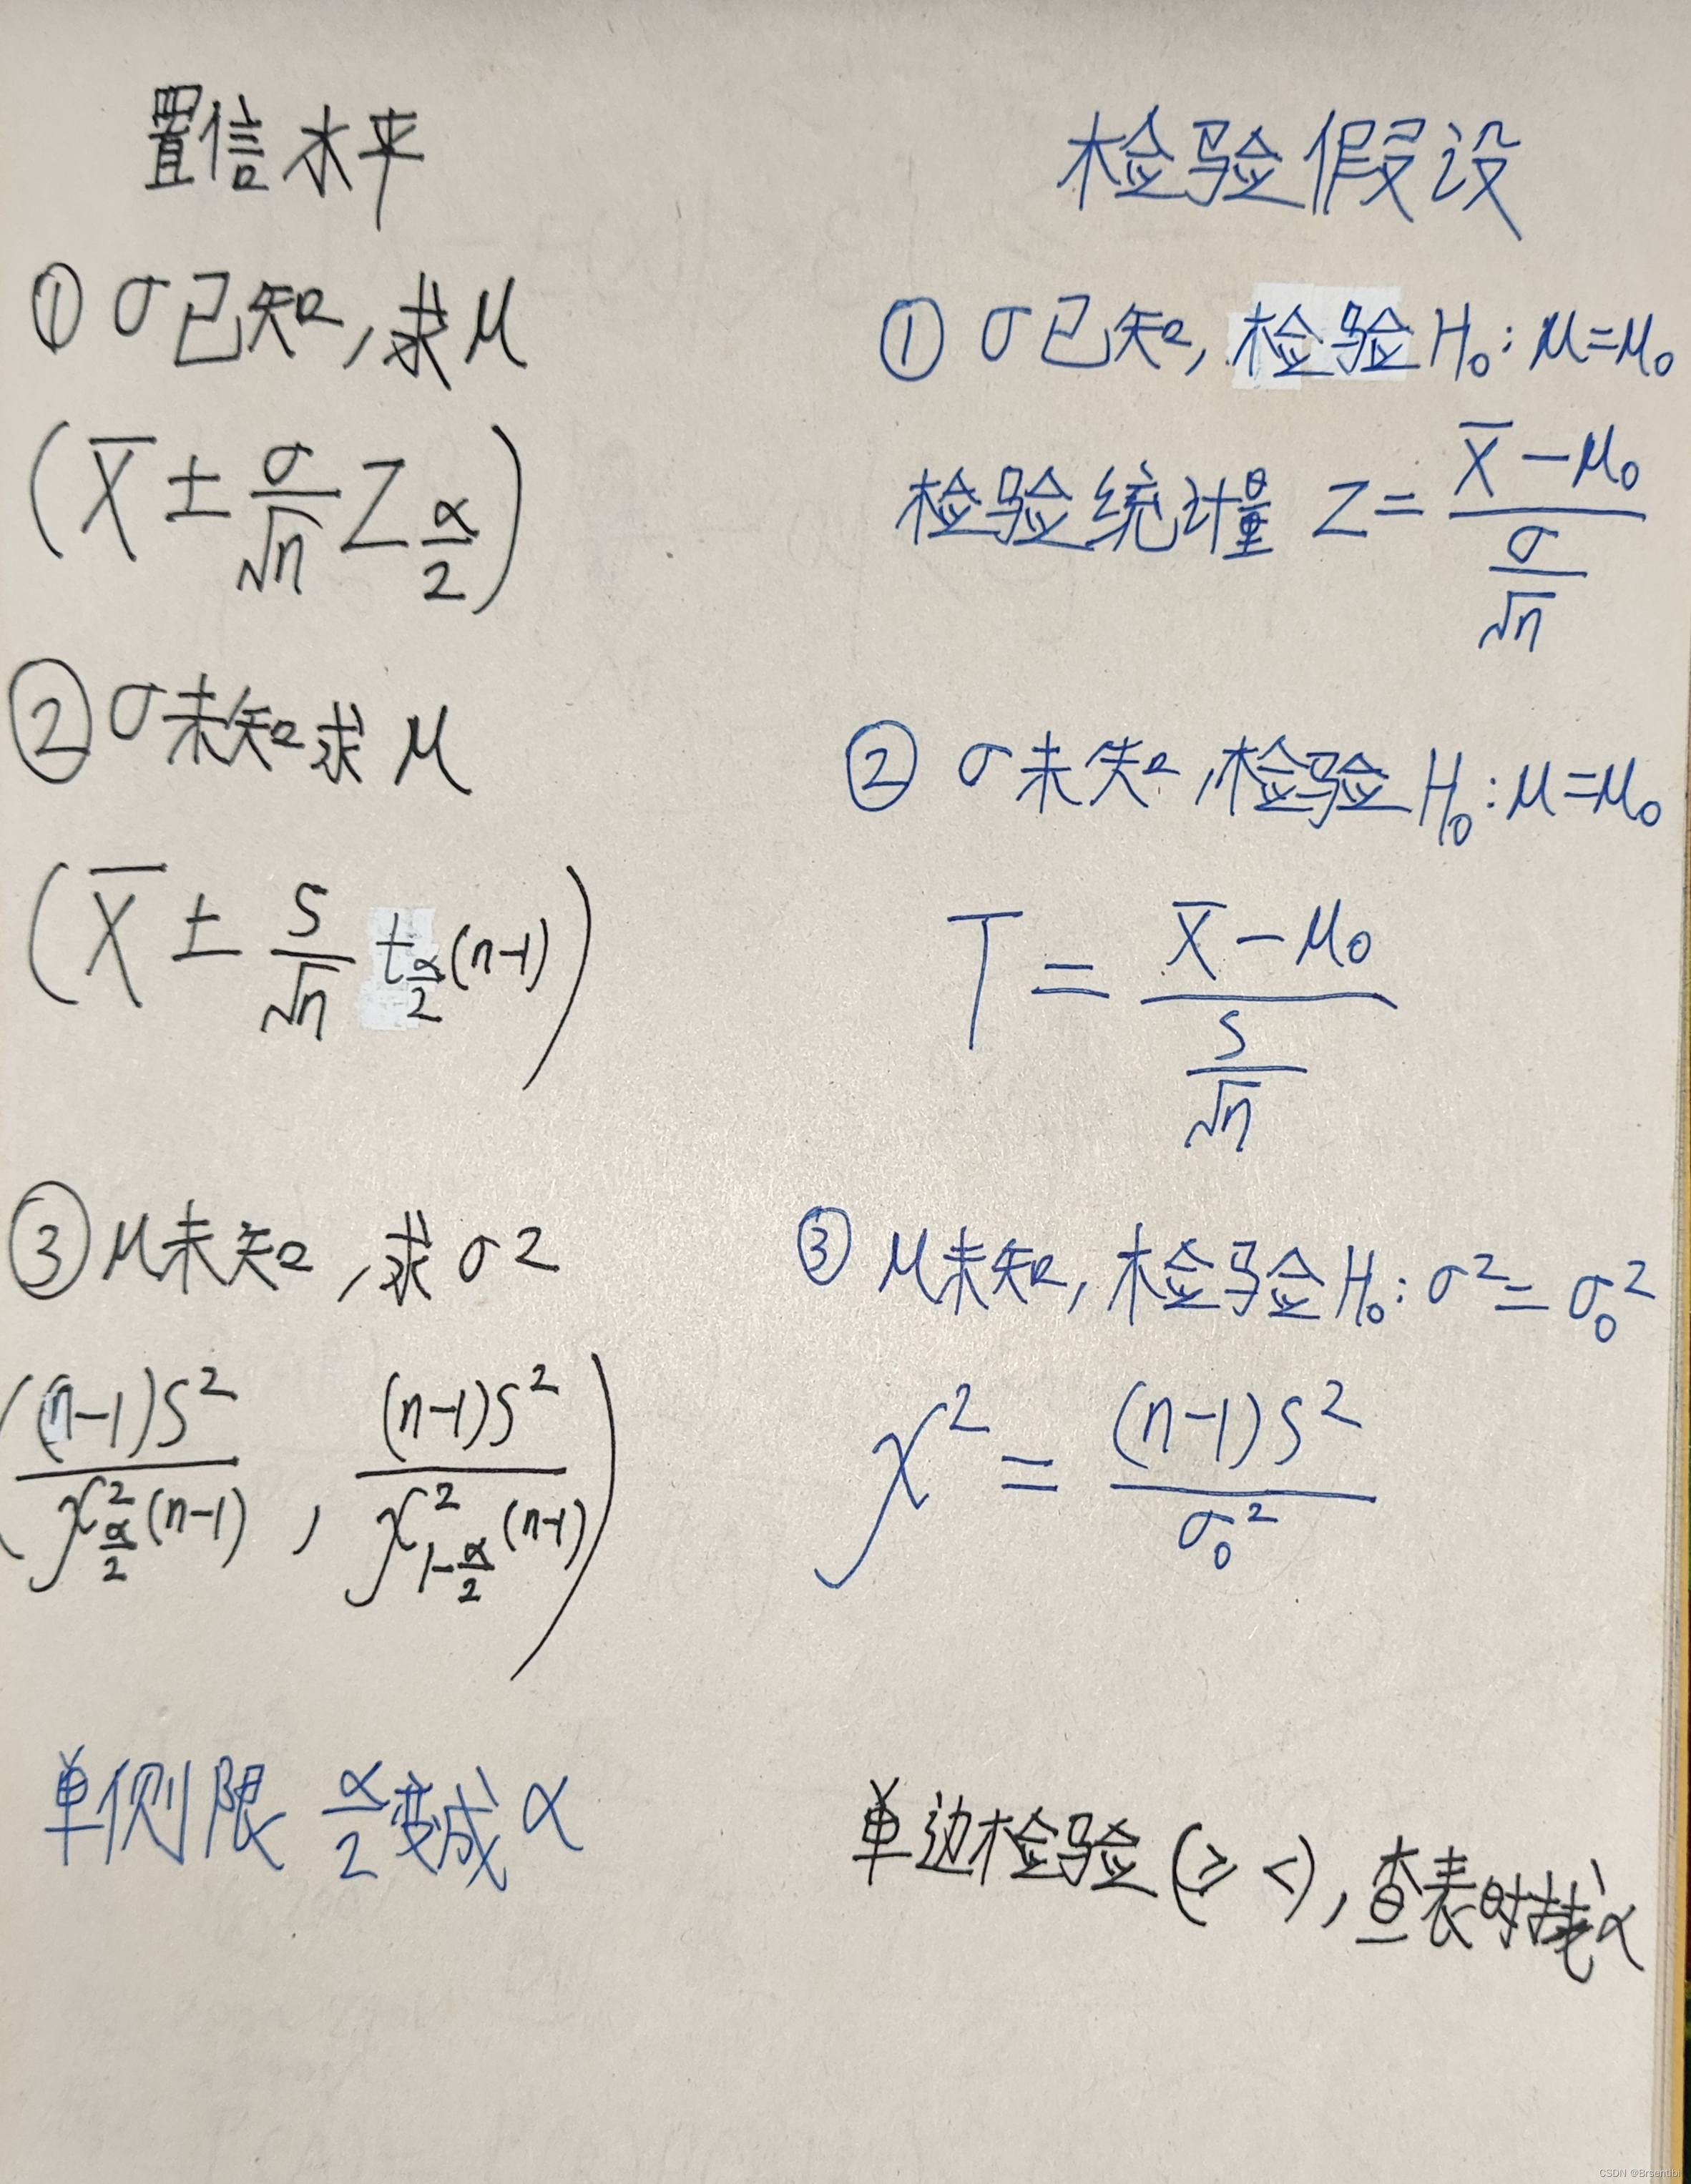 置信水平
① σ已知,求μ
(X̄ ± σ/√n Z_{α/2})
② σ未知求μ
(X̄ ± S/√n t_{α/2}(n-1))
③ μ未知,求σ2
((n-1)S²/χ²_{α/2}(n-1) , (n-1)S²/χ²_{1-α/2}(n-1))
单侧限 α/2变成α
检验假设
① σ已知,检验H₀:μ=μ₀
检验统计量 Z= (X̄-μ₀)/(σ/√n)
② σ未知,检验H₀:μ=μ₀
T = (X̄-μ₀)/(S/√n)
③ μ未知,检验H₀:σ²=σ₀²
χ² = (n-1)S²/σ₀²
单边检验(≥ <),查表时找α
CSDN @Brsentibi